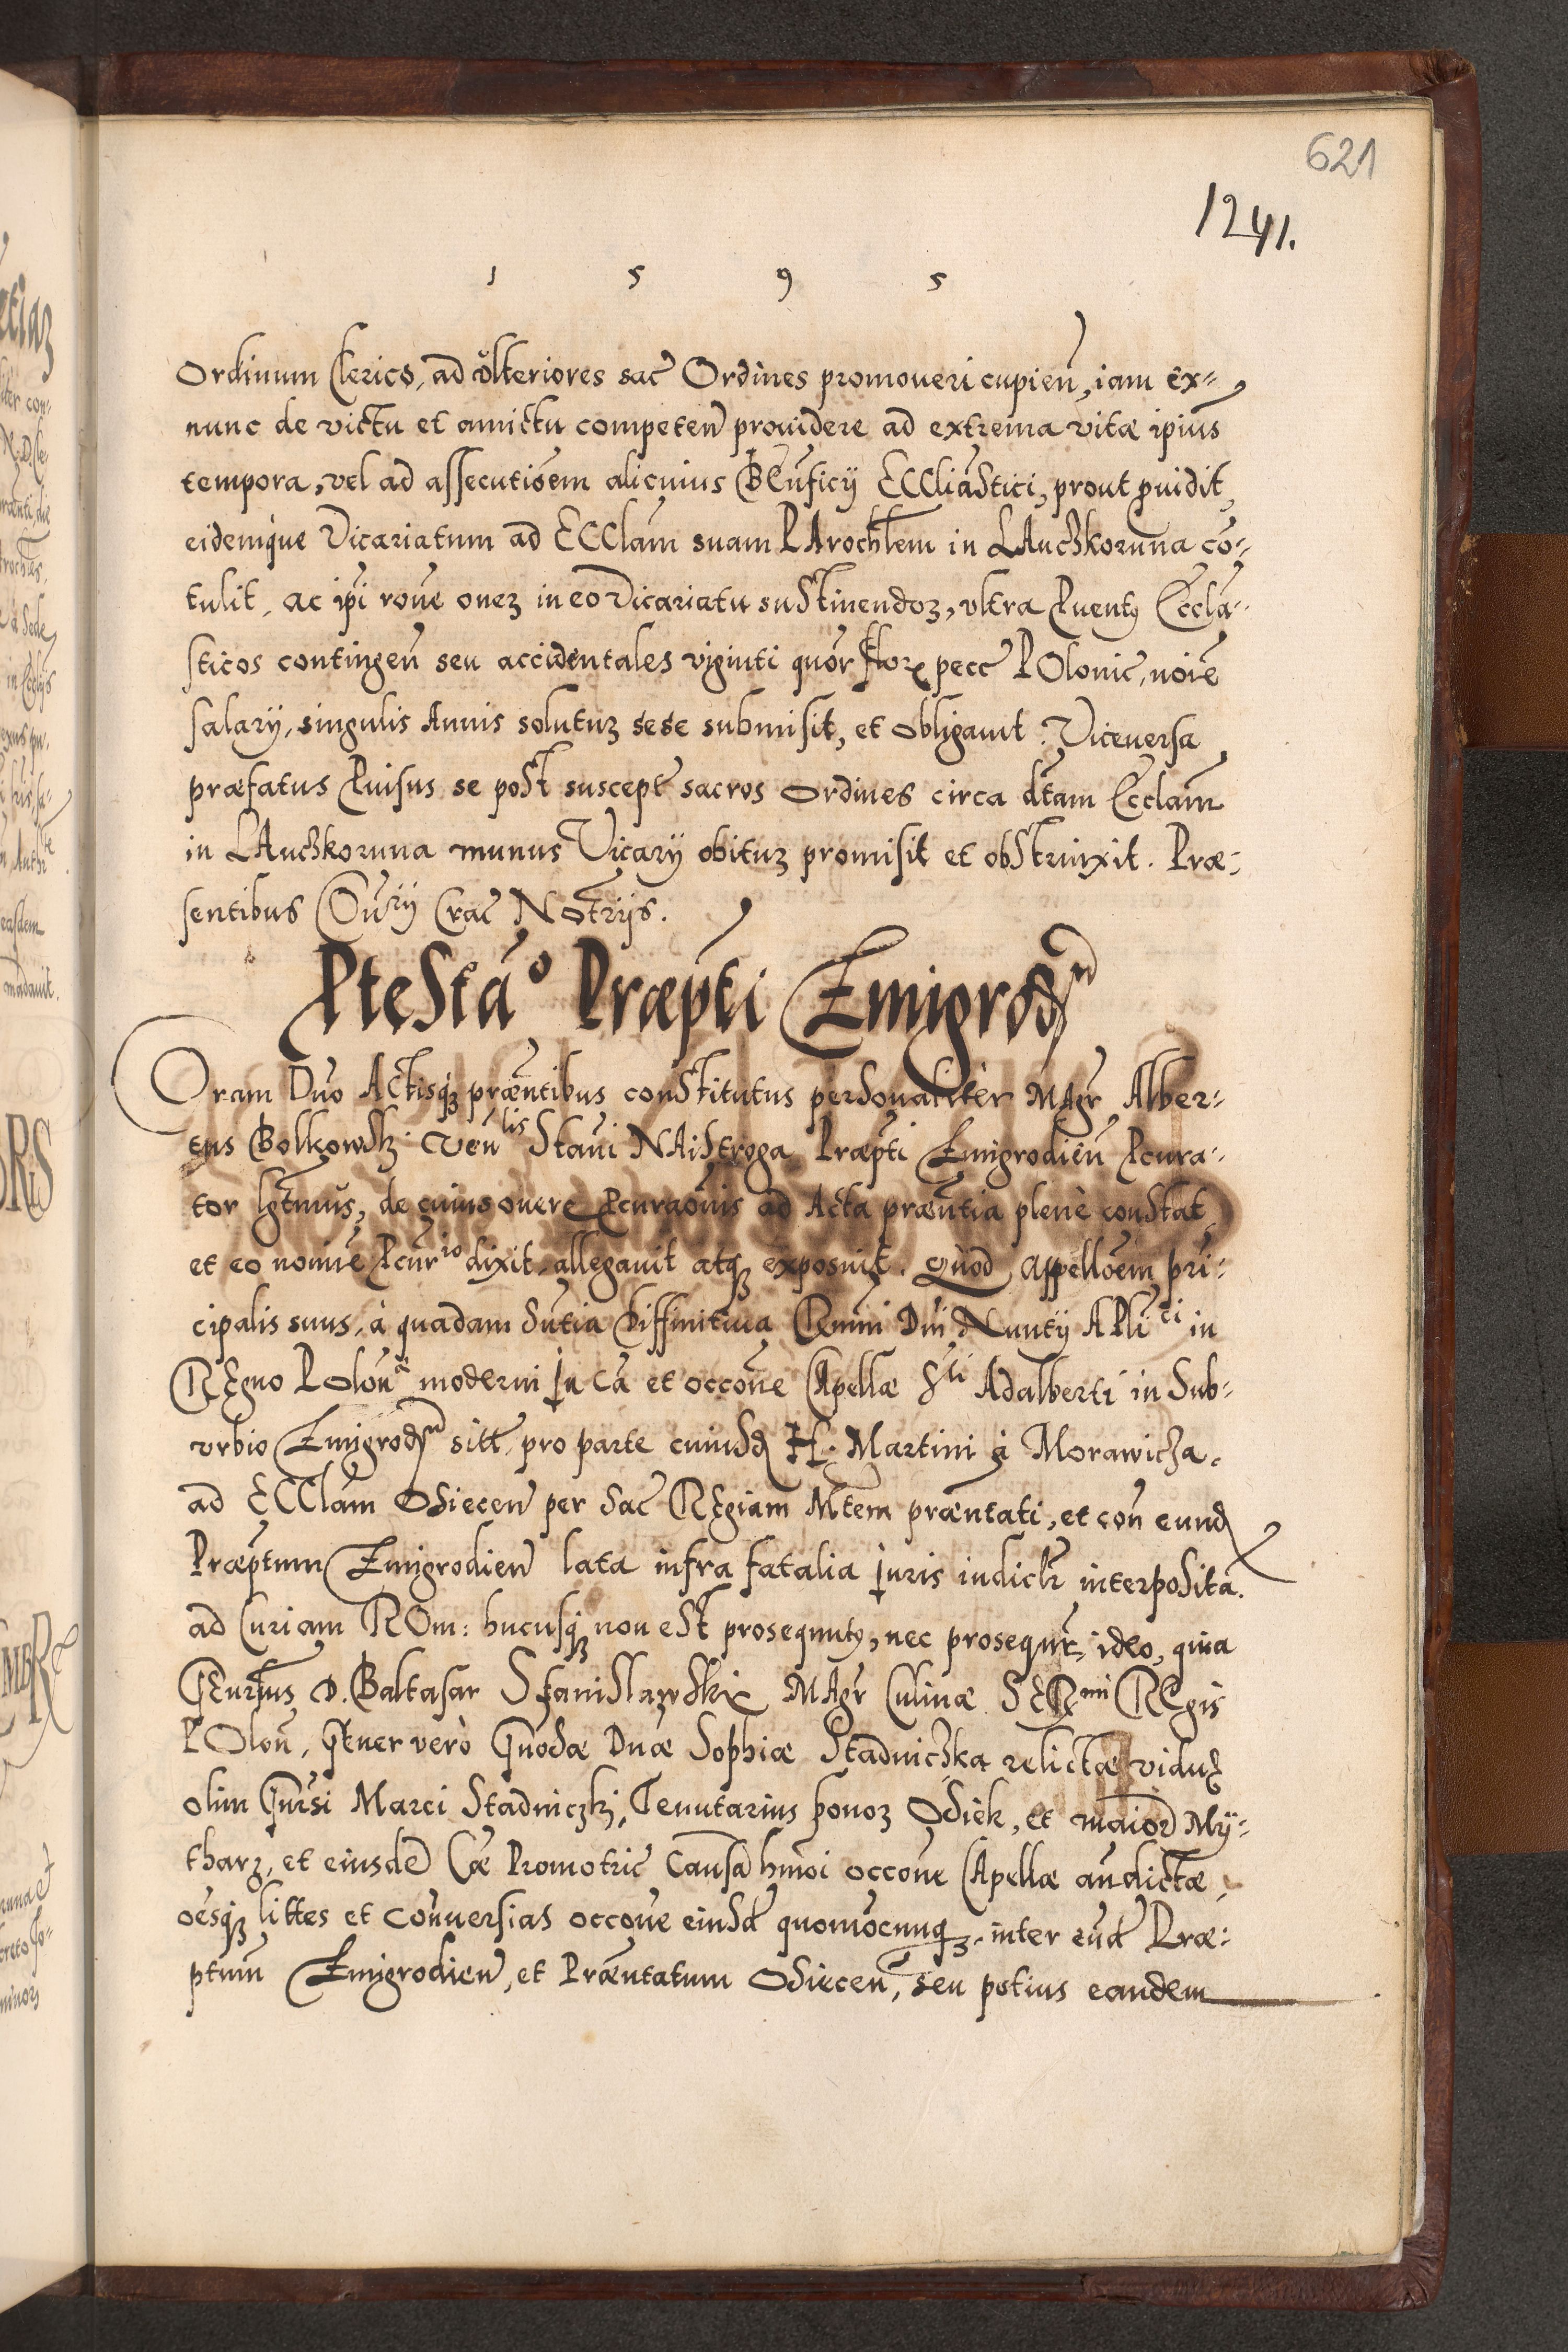 621
1241.
1 5 9 5
Ordinum Clerico, ad ulteriores sac Ordines promoueri cupien, iam ex-
nunc de victu et amictu competen prouidere ad extrema vitæ ipius
tempora, vel ad assecutioem alicuius Bnficij ECCliastici, prout puidit,
eidemque Vicariatum ad ECClam suam PArochlem in LAnczkoruna co-
tulit, ac ipi rone onez in eo Vicariatu sustinendoz, vltra Puentus Eccla-
sticos contingen seu accidentales viginti quor flor pecc POlonic, noie
salarij, singulis Annis soluturz sese submisit, et obligauit. Viceuersa
præfatus Puisus se post suscept sacros ordines circa dtam Ecclam
in LAnczkoruna munus Vicarij obiturz promisit et obstrinxit. Præ-
sentibus Crac Notrijs.
Ptestao Præpti Zmigrod
Coram Dno Actisqz præntibus constitutus personaliter MAgr Alber-
tus Bolkowski Venlis Stani NAistroga Præpti Zmigrodien Pcura-
tor lgtmus, de cuius onere Pcuraonis ad Acta præntia plene constat
et eo nomine Pcurio dixit, allegauit atqz exposuit. Quod appelloem prin-
cipalis suus, à quadam Sntia diffinitiua Rmi Dni Nuntij APlici in
REgno Polon moderni in Ca et occone CApellæ Sti Adalberti in Sub-
vrbio Zmigrod sitt, pro parte cuiusd H. Martini à Morawicza
ad ECClam Osiecen per Sac REgiam Mtem præntati, et con eund
Præptum Zmigrodien lata infra fatalia juris iudiclr interposita
ad Curiam ROm: hucusqz non est prosequutus, nec prosequr ideo, quia
D. Baltasar Stanislawski MAgr Culinæ SERmi REgis
POlon, gener verò Gnosæ Dnæ Sophiæ Stadniczka relictæ viduæ
olim Gnrsi Marci Stadniczki, Tenutarius bonoz Osiek, et maior My-
tharz, et eiusde Cæ Promotric Causa hmoi occone CApellæ andictæ,
oesqz littes et conuersias occone eiusd quomocunqz inter eund Præ-
ptum Zmigrodien, et Præntatum Osiecen, seu potius eandem